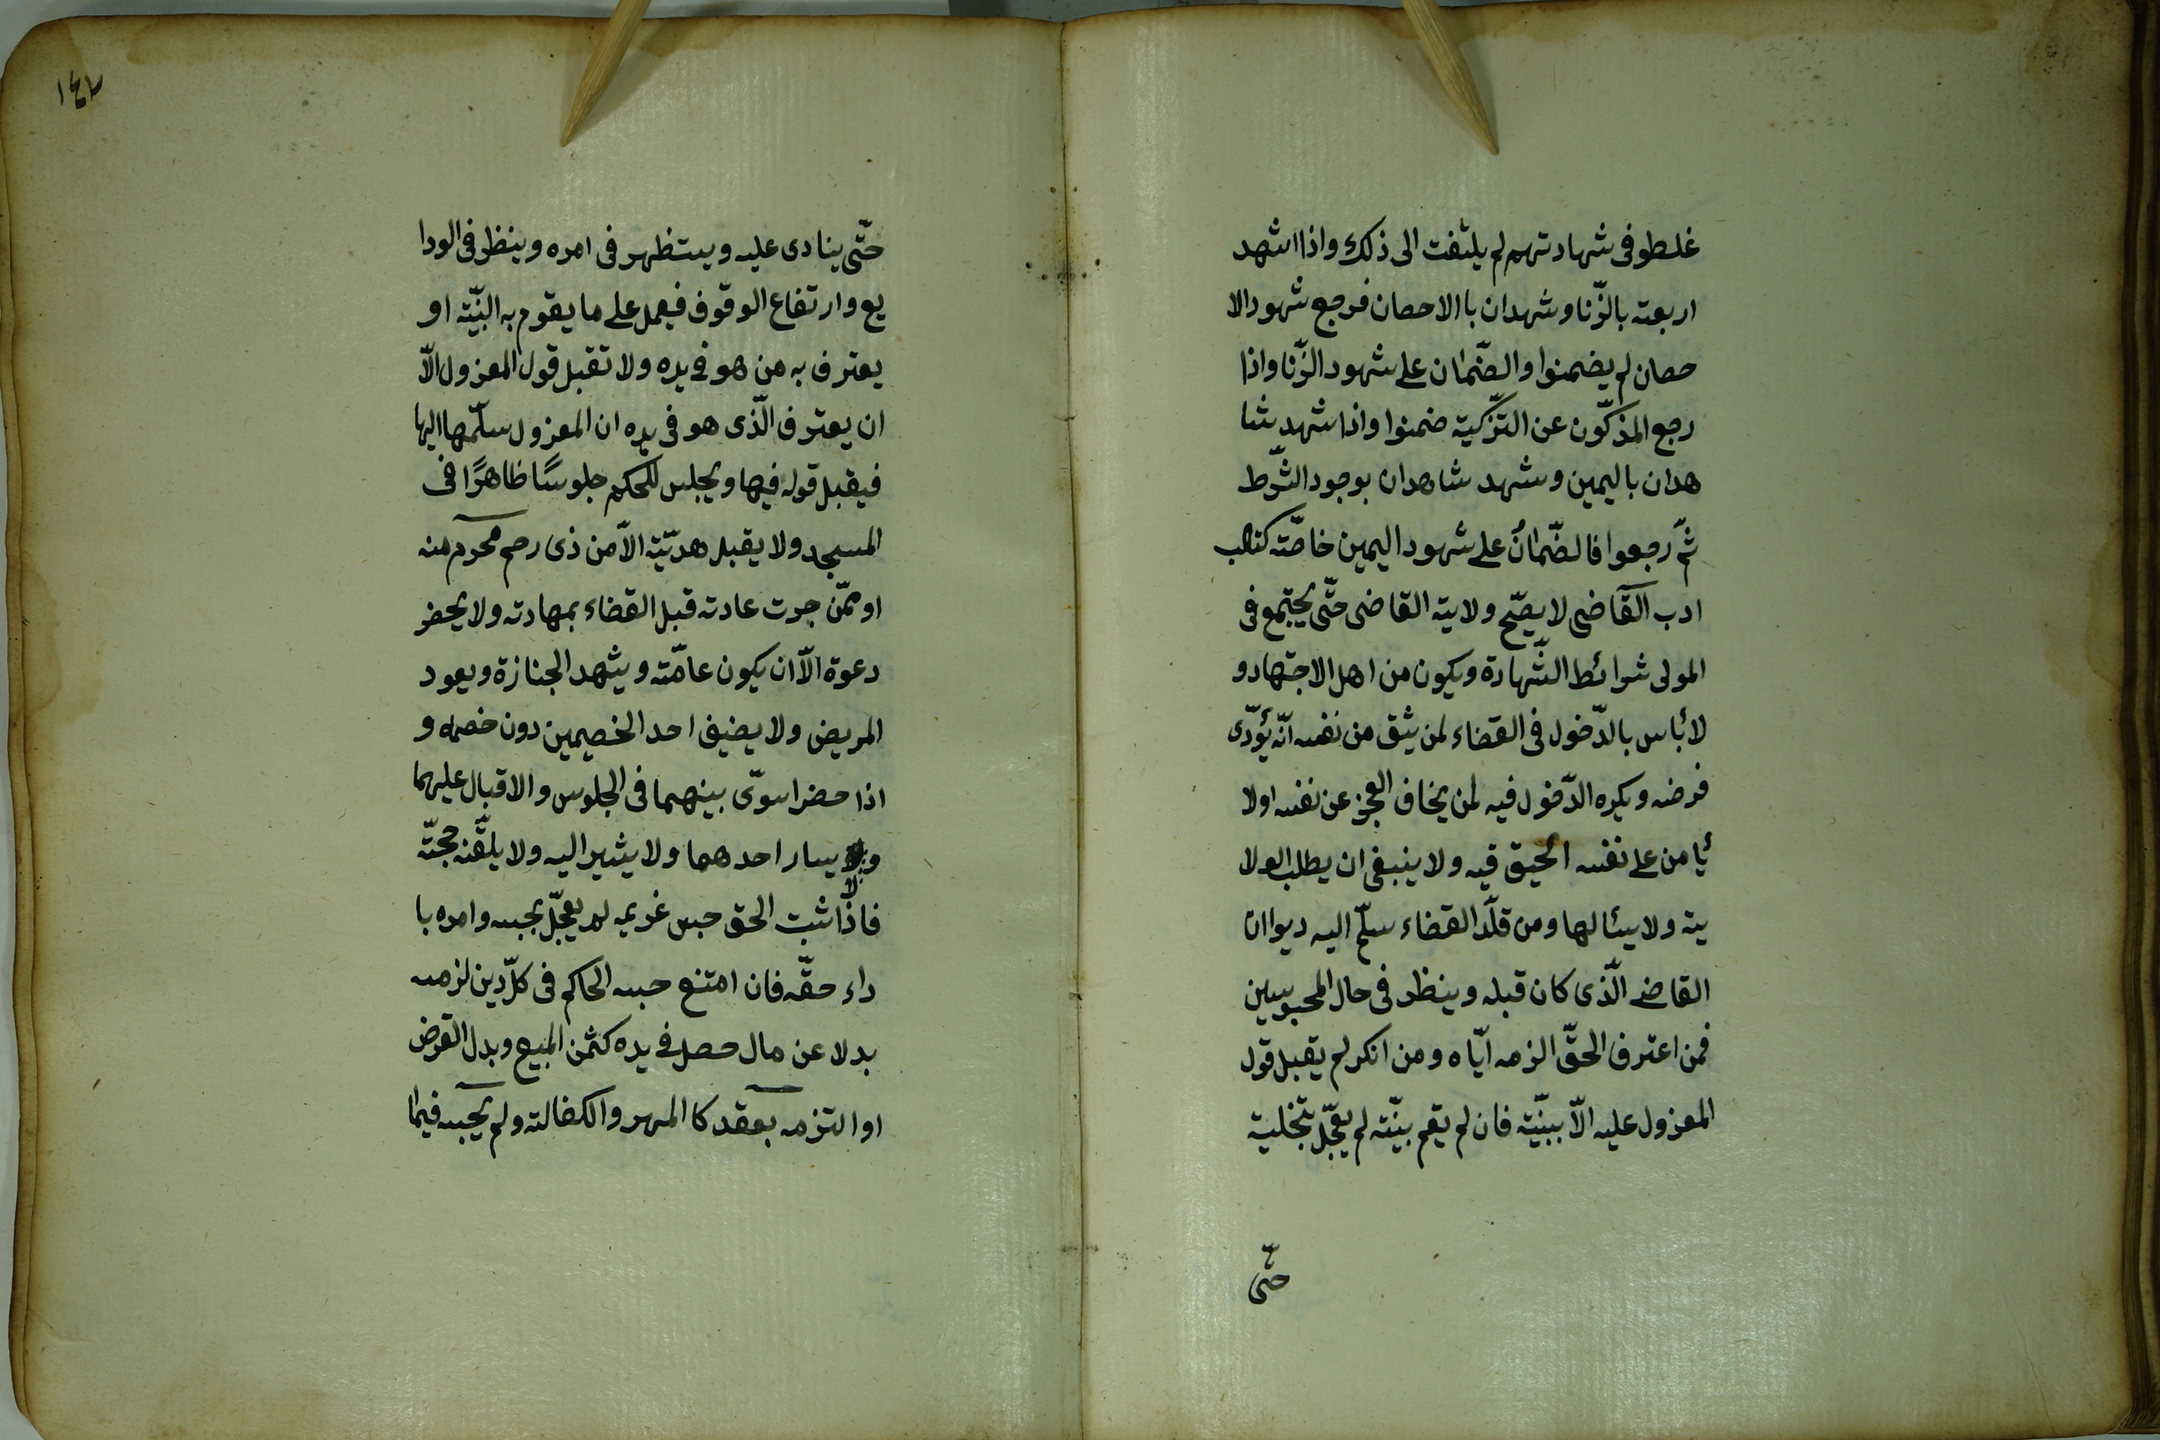 غلطو فى شهادتهم لم يلتفت الى ذلك واذا اشهد
اربعته بالزّنا وشهدان باالاحصان فرجع شهود الا
حصان لم يضمنوا والضّمان على شهود الزّنا واذا
رجع المذكّون عن التّزكية ضمنوا واذا شهد شا
هدان باليمين وشهد شاهدان بوجود الشّرط
ثمّ رجعوا فالضّمانُ على شهود اليمين خاصّته كتاب
ادب القاضى لا يصّح ولايته القاضى حتّى يجتمع فى
المولى شرائط الشّهادة ويكون من اهل الاجتهاد و
لا بأس بالدّخول فى القضاء لمن يثق من نفسه انّه يؤدّى
فرضه ويكره الدّخول فيه لمن يخاف العجز عن نفسه اولا
يأمن على نفسه الحيق فيه ولا ينبغى ان يطلب الولا
ية ولا يسئالها ومن قلّد القضاء سلّم اليه ديوان
القاضى الّذى كان قبله وينظر فى حال المحبوسين
فمن اعترف الحقّ الزمه ايّاه ومن انكر لم يقبل قول
المعزول عليه الاّ ببيّنة فان لم يقم بيّنته لم يعجّل بتخلية
حتّى
١٤٧
حتّى ينادى عليه ويستظهر فى امره وينظر فى الودا
يع وارتفاع الوقوف فيعمل على ما يقوم به البيّنة او
يعترف به من هو فى يده ولا تقبل قول المعزول الاّ
ان يعترف الّذى هو فى يده ان المعزول سلّمها اليها
فيقبل قوله فيها ويجلس للحكم جلوسًا ظاهرًا فى
المسجد ولا يقبل هديّته الاّ من ذى رحم محرم منه
او ممّن جرت عادته قبل القضاء بمهادته ولا يحضر
دعوة الاّ ان يكون عامّته ويشهد الجنازة ويعود
المريض ولا يضيف احد الخصيمين دون خصمه و
اذا حضرا سوّى بينهما فى الجلوس والاقبال عليهما
ولا يسار احدهما ولا يشير اليه ولا يلقّنه حجتّه
فاذا ثبت الحق حبس غريمه لم يعجّل بحبسه وامره با
داء حقّه فان امتنع حبسه الحاكم فى كلّ دين لزمه
بدلا عن مال حصل فى يده كثمن المبيع وبدل القرض
او التزمه بعقد كا المهر والكفالته ولم يحبسه فيما